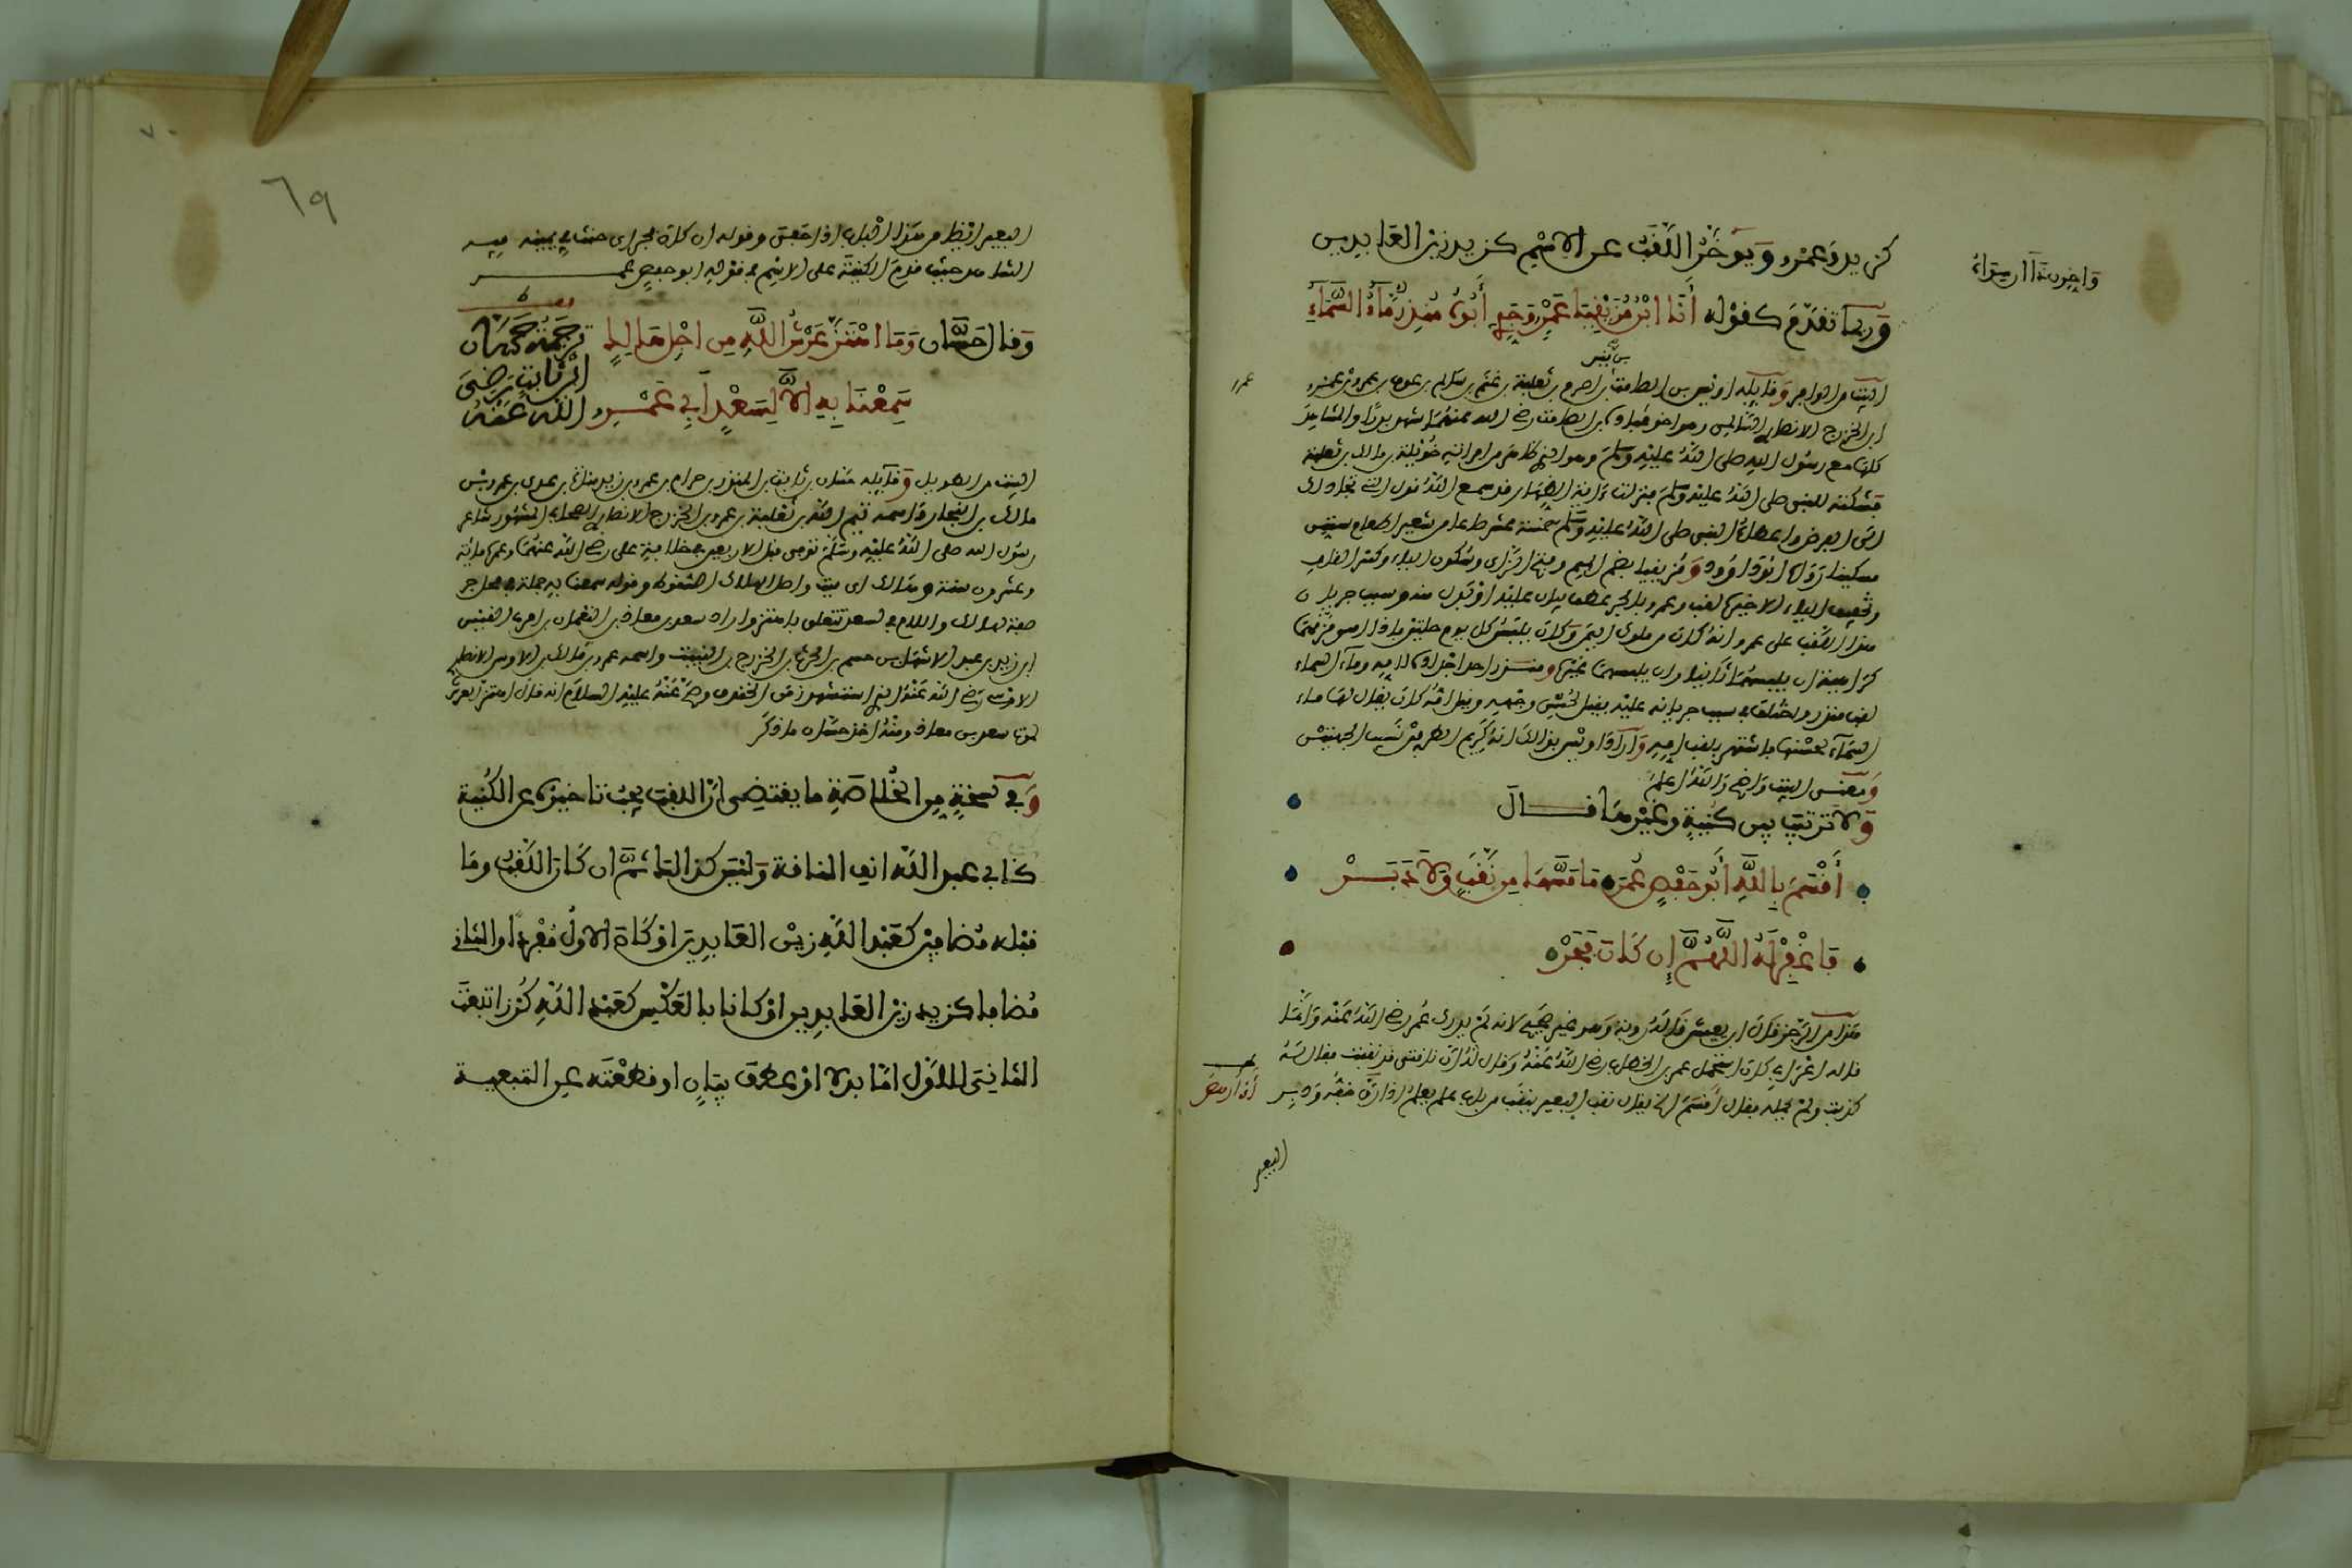 كزيد وعمرو ويؤخر اللقب عن الاسم كزيد زين العابدين
وربما تقدم كقوله أنا ابن مزيقيا عمرو وجدي أبوه منذر ماء السماء
البيت من الوافر وقايله اوس بن الصامت بن اصرم بن ثعلبة بن غنم بن سالم بن عوف بن عمرو بن عمرو
ابن الخزرج الانصاري وهو اخو عبادة بن الصامت رضي الله عنهما شهد بدرا والمشاهد
كلها مع رسول الله صلى الله عليه وسلم وهو الذي ظاهر من امراته خويلة بنت مالك بن ثعلبة
فشكته للنبي صلى الله عليه وسلم فنزلت اية الظهار قد سمع الله قول التي تجادلك
النبي صلى الله عليه وسلم خمسة عشر صاعا من شعير اطعام ستين
مسكينا رواه ابو داوود ومزيقيا بضم الميم وفتح الزاي وسكون الياء وكسر القاف
وتخفيف الياء الاخيرة لقب وعمرو بالجر عطف بيان عليه او بدل منه وسبب جريان
هذا اللقب على عمرو انه كان من ملوك اليمن وكان يلبس كل يوم حلتين فاذا امسى مزقهما
كراهية ان يلبسهما ثانيا وان يلبسهما غيره ومنذر احد اجداده لامه وماء السماء
لقب منذر واختلف في سبب جريانه عليه فقيل لحسن وجهه وقيل امه كان يقال لها ماء
السماء لحسنها فاشتهر بلقب امه واراد اوس بذلك انه كريم الطرفين نسيب الجهتين
ومعنى البيت واضح والله اعلم
ولا ترتيب بين كنية وغيرها قال
أقسم بالله أبو حفص عمر ما مسها من نقب ولا دبر
فاغفر له اللهم إن كان فجر
هذا من الرجز قال ابن يعيش قاله رؤبة وهو غير صحيح لانه لم يدرك عمر رضي الله عنه وانما
قاله اعرابي كان استحمل عمر بن الخطاب رضي الله عنه وقال له ان ناقتي قد نقبت فقال له
كذبت ولم يحمله فقال أقسم الخ يقال نقب البعير ينقب من باب علم يعلم اذا رق خفه ودبر
البعير
عمرو
٦٩
وقال حسان وما اهتز عرش الله من اجل هالك
سمعنا به إلا لسعد أبي عمرو
ترجمة حسان
ابن ثابت رضي
الله عنه
البيت من الطويل وقايله حسان بن ثابت بن المنذر بن حرام بن عمرو بن زيد مناة بن عدي بن عمرو بن
مالك بن النجار واسمه تيم الله بن ثعلبة بن عمرو بن الخزرج الانصاري الصحابي المشهور شاعر
رسول الله صلى الله عليه وسلم توفي قبل الاربعين في خلافة علي رضي الله عنهما وعمره مائة
وعشرون سنة وهالك اي ميت واصل الهلاك السقوط وقوله سمعنا به جملة في محل جر
صفة لهالك واللام في لسعد تتعلق باهتز واراد سعد بن معاذ بن النعمان بن امرئ القيس
ابن زيد بن عبد الاشهل بن جشم بن الحرث بن الخزرج بن النبيت واسمه عمرو بن مالك بن الاوس الانصاري
الاوسي رضي الله عنه الذي استشهد زمن الخندق وصح عنه عليه السلام انه قال اهتز العرش
لموت سعد بن معاذ ومنه اخذ حسان ما ذكر
وفي نسخة من الخلاصة ما يقتضي أن اللقب يجب تاخيره عن الكنية
كابي عبد الله انف الناقة وليس كذالك ثم ان كان اللقب وما
قبله مضافين كعبد الله زين العابدين او كان الاول مفردا والثاني
مضافا كزيد زين العابدين او كانا بالعكس كعبد الله كرز اتبعت
الثاني للاول اما بدلا او عطف بيان او قطعته عن التبعية